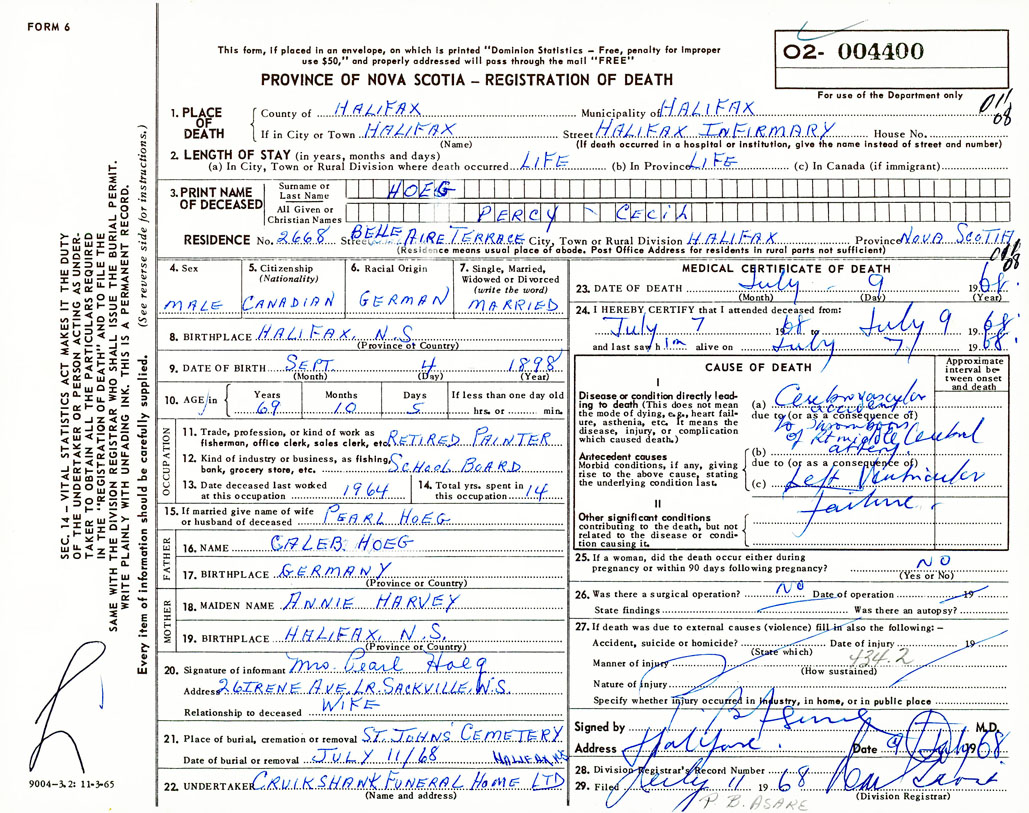 FORM 6
This form, if placed in an envelope, on which is printed "Dominion Statistics – Free, penalty for improper
use $50," and properly addressed will pass through the mail "FREE"
PROVINCE OF NOVA SCOTIA – REGISTRATION OF DEATH
02- 004400
For use of the Department only
011
08
1. PLACE OF DEATH
County of HALIFAX Municipality of HALIFAX
If in City or Town HALIFAX Street HALIFAX INFIRMARY House No.
(Name) (If death occurred in a hospital or institution, give the name instead of street and number)
2. LENGTH OF STAY (in years, months and days)
(a) In City, Town or Rural Division where death occurred LIFE (b) In Province LIFE (c) In Canada (if immigrant)
3. PRINT NAME OF DECEASED
Surname or Last Name HOEG
All Given or Christian Names PERCY – CECIL
RESIDENCE No. 2668 Street BELLE AIRE TERRACE City, Town or Rural Division HALIFAX Province NOVA SCOTIA
(Residence means usual place of abode. Post Office Address for residents in rural parts not sufficient)
011
08
4. Sex
MALE
5. Citizenship (Nationality)
CANADIAN
6. Racial Origin
GERMAN
7. Single, Married, Widowed or Divorced (write the word)
MARRIED
8. BIRTHPLACE HALIFAX, N.S.
(Province or Country)
9. DATE OF BIRTH SEPT. 4 1898
(Month) (Day) (Year)
10. AGE in Years Months Days If less than one day old
69 10 5 hrs. or min.
OCCUPATION
11. Trade, profession, or kind of work as
fisherman, office clerk, sales clerk, etc. RETIRED PAINTER
12. Kind of industry or business, as fishing,
bank, grocery store, etc. SCHOOL BOARD
13. Date deceased last worked
at this occupation 1964
14. Total yrs. spent in
this occupation 14
15. If married give name of wife
or husband of deceased PEARL HOEG
FATHER
16. NAME CALEB HOEG
17. BIRTHPLACE GERMANY
(Province or Country)
MOTHER
18. MAIDEN NAME ANNIE HARVEY
19. BIRTHPLACE HALIFAX, N.S.
(Province or Country)
20. Signature of informant Mrs. Pearl Hoeg
Address 26 IRENE AVE, LR. SACKVILLE, N.S.
Relationship to deceased WIFE
21. Place of burial, cremation or removal ST. JOHNS' CEMETERY
Date of burial or removal JULY 11/68 HALIFAX, N.S.
22. UNDERTAKER CRUIKSHANK FUNERAL HOME LTD
(Name and address)
MEDICAL CERTIFICATE OF DEATH
23. DATE OF DEATH July 9 1968
(Month) (Day) (Year)
24. I HEREBY CERTIFY that I attended deceased from:
July 7 1968 to July 9 1968
and last saw him alive on July 7 1968
CAUSE OF DEATH
Approximate interval between onset and death
I
Disease or condition directly leading to death (This does not mean the mode of dying, e.g., heart failure, asthenia, etc. It means the disease, injury, or complication which caused death.)
(a) Cerebrovascular
accident
due to (or as a consequence of)
to thrombosis
of Rt middle Cerebral
(b) artery
Antecedent causes
Morbid conditions, if any, giving rise to the above cause, stating the underlying condition last.
due to (or as a consequence of)
(c) Left Ventricular
failure
II
Other significant conditions
contributing to the death, but not related to the disease or condition causing it.
25. If a woman, did the death occur either during
pregnancy or within 90 days following pregnancy? NO
(Yes or No)
26. Was there a surgical operation? NO Date of operation 19
State findings Was there an autopsy?
27. If death was due to external causes (violence) fill in also the following: –
Accident, suicide or homicide? Date of injury 19
(State which) 434.2
Manner of injury (How sustained)
Nature of injury
Specify whether injury occurred in industry, in home, or in public place
Signed by M.D.
Address Halifax. Date 9 July 1968
28. Division Registrar's Record Number
29. Filed July 11 1968
(Division Registrar)
P. B. ASARE
SEC. 14 – VITAL STATISTICS ACT MAKES IT THE DUTY
OF THE UNDERTAKER OR PERSON ACTING AS UNDER-
TAKER TO OBTAIN ALL THE PARTICULARS REQUIRED
IN THE "REGISTRATION OF DEATH" AND TO FILE THE
SAME WITH THE DIVISION REGISTRAR WHO SHALL ISSUE THE BURIAL PERMIT.
WRITE PLAINLY WITH UNFADING INK. THIS IS A PERMANENT RECORD.
Every item of information should be carefully supplied. (See reverse side for instructions.)
9004–3.2: 11-3-65